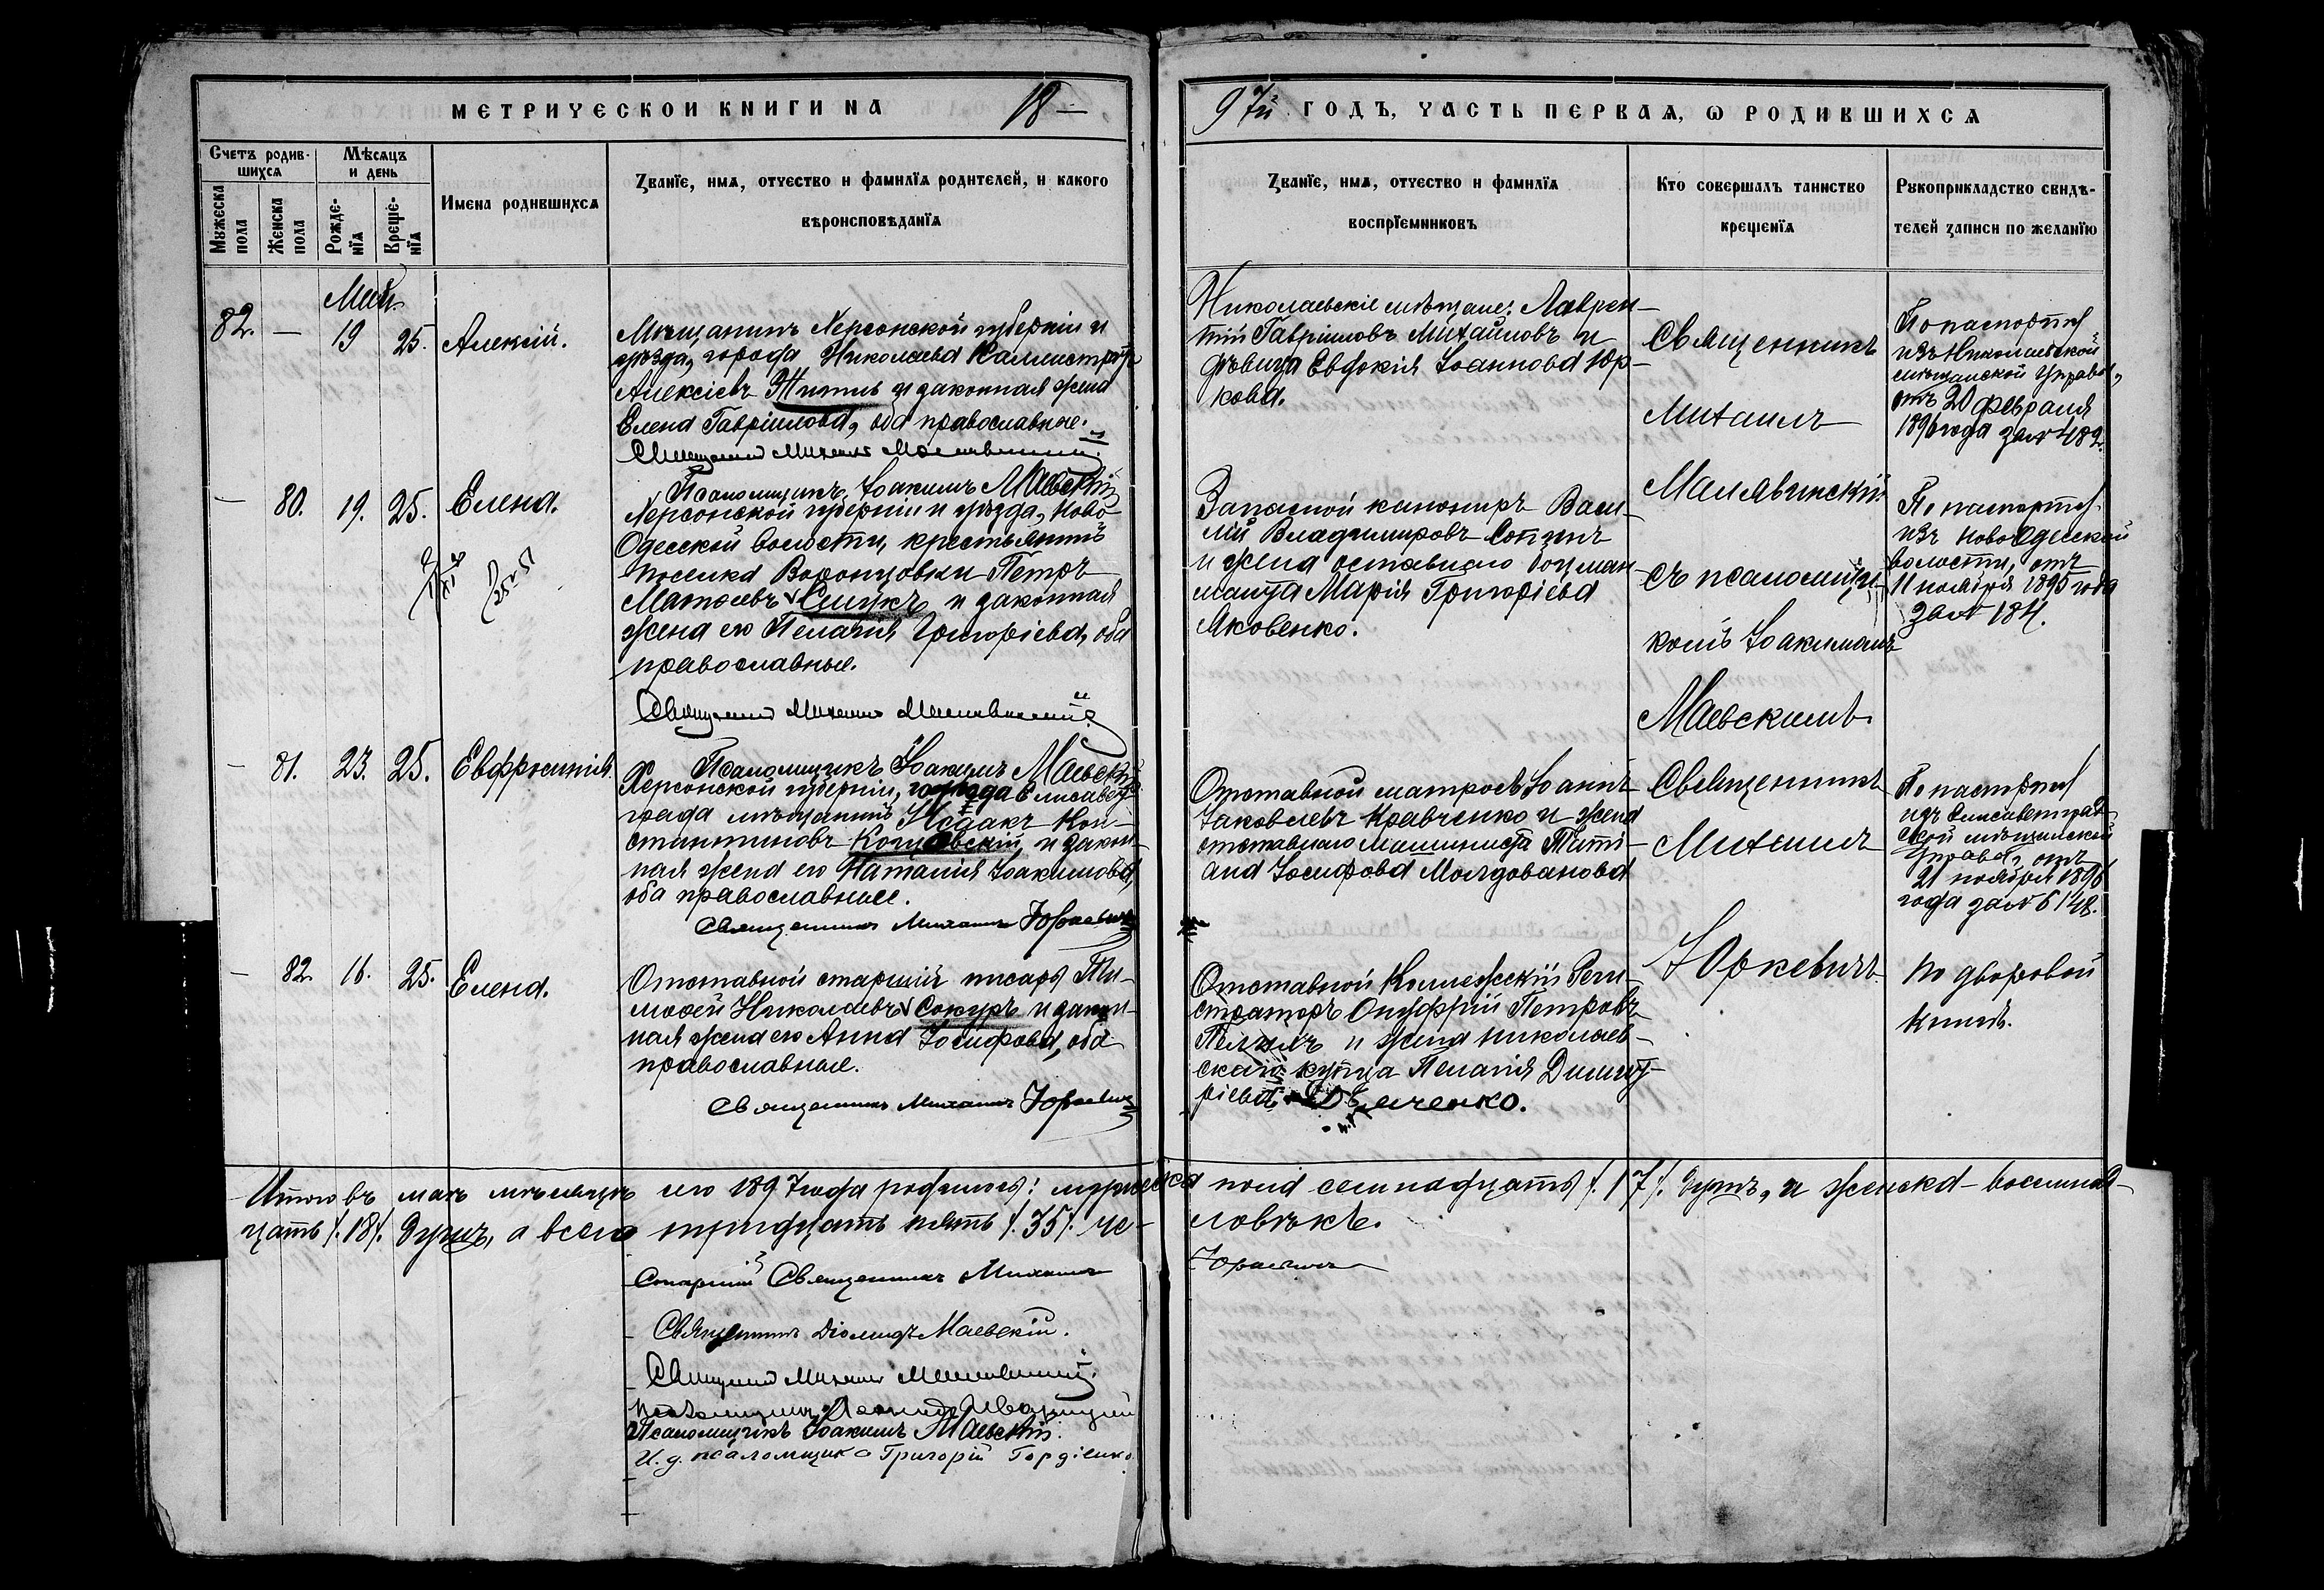 МЕТРИЧЕСКОЙ КНИГИ НА 18—
97й ГОДЪ, ЧАСТЬ ПЕРВАЯ, Ѡ РОДИВШИХСЯ
Счетъ родив-
шихся
Мужеска
пола
Женска
пола
Мѣсяцъ
и день
Рожде-
нїя
Креще-
нїя
Имена родившихся
Званїе, имя, отчество и фамилїя родителей, и какого
вѣроисповѣданїя
Званїе, имя, отчество и фамилїя
воспрїемниковъ
Кто совершалъ таинство
крещенїя
Рукоприкладство свидѣ-
телей записи по желанїю
Май.
82. — 19 25. Алексій.
Мѣщанинъ Херсонской губерніи и
уѣзда, города Николаева Каллистратъ
Алексіевъ Житль и законная жена
Елена Гавріилова, оба православные.
Священникъ Михаилъ Малявинскій.
Псаломщикъ Іоакимъ Маевскій
Николаевскіе мѣщане: Лаврен-
тій Гавріиловъ Михайловъ и
дѣвица Евдокія Іоаннова Юр-
кова.
Священникъ
Михаилъ
Малявинскій
съ псаломщи-
комъ Іоакимомъ
Маевскимъ.
По паспорту
изъ Николаевской
мѣщанской Управы,
отъ 20 февраля
1896 года за № 482.
— 80. 19. 25. Елена.
Херсонской губерніи и уѣзда, Ново-
Одесской волости, крестьянинъ
поселка Воронцовки Петръ
Матѳеевъ и законная
жена его Пелагія Григоріева, оба
православные.
Священникъ Михаилъ Малявинскій
Псаломщикъ Іоакимъ Маевскій
Запасной канониръ Васи-
лій Владиміровъ Сопинъ
и жена оставнаго боцман-
манта Марія Григоріева
Яковенко.
По паспорту
изъ Новоодесской
волости, отъ
11 ноября 1895 года
за № 184.
— 81. 23. 25. Евфросинія.
Херсонской губерніи, города Елисавет-
града мѣщанинъ Исаакъ Кон-
стантиновъ и закон-
ная жена его Наталія Іоакимова,
оба православные.
Священникъ Михаилъ Юркевичъ
Отставной матросъ Іоаннъ
Іаковлевъ Кравченко и жена
отставнаго машиниста Тати-
ана Іосифова Молдованова
Священникъ
Михаилъ
Юркевичъ.
По паспорту
изъ Елисаветград-
ской мѣщанской
Управы, отъ
21 ноября 1896
года за № 6148.
— 82. 16. 25. Елена.
Отставной старшій писарь Ти-
моѳей Николаевъ Сокуръ и закон-
ная жена его Анна Іосифова, оба
православные.
Священникъ Михаилъ Юркевичъ
Отставной Коллежскій Реги-
страторъ Онуфрій Петровъ
и жена николаев-
скаго купца Пелагія Димит-
ріева
По дворовой
книгѣ.
Итого въ маѣ мѣсяцѣ сего 1897 года родилось: мужеска пола семнадцать /.17/. душъ, и женска – восемнад-
цать /.18/. душъ, а всего тридцать пять /.35/. че-ловѣкъ.
Старшій Священникъ Михаилъ Юркевичъ
Священникъ Діомидъ Маевскій.
Священникъ Михаилъ Малявинскій.
Псаломщикъ Леонидъ
Псаломщикъ Іоакимъ Маевскій.
И. д. псаломщика Григорій Гордіенко.